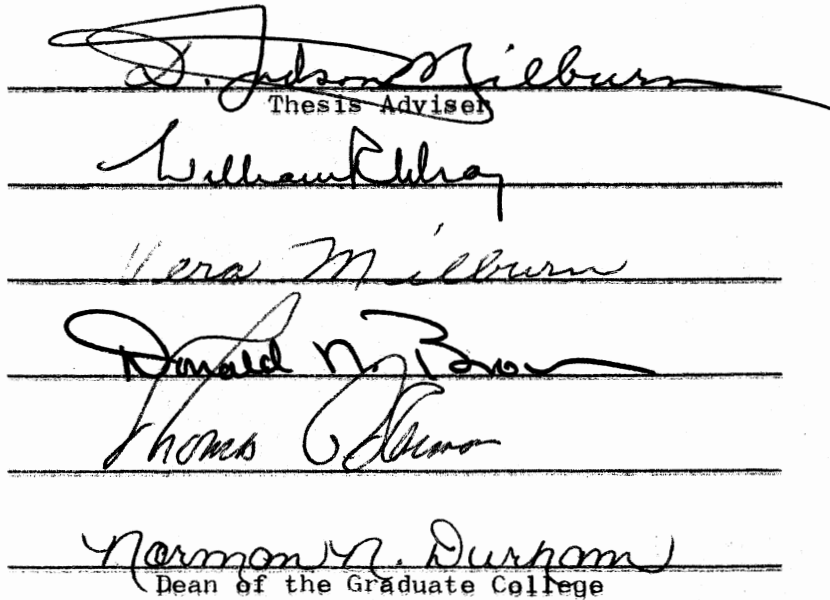 D. Judson Milburn
Thesis Adviser
William R. Wray
Vera Milburn
Donald N. Brown
Thomas
Norman N. Durham
Dean of the Graduate College